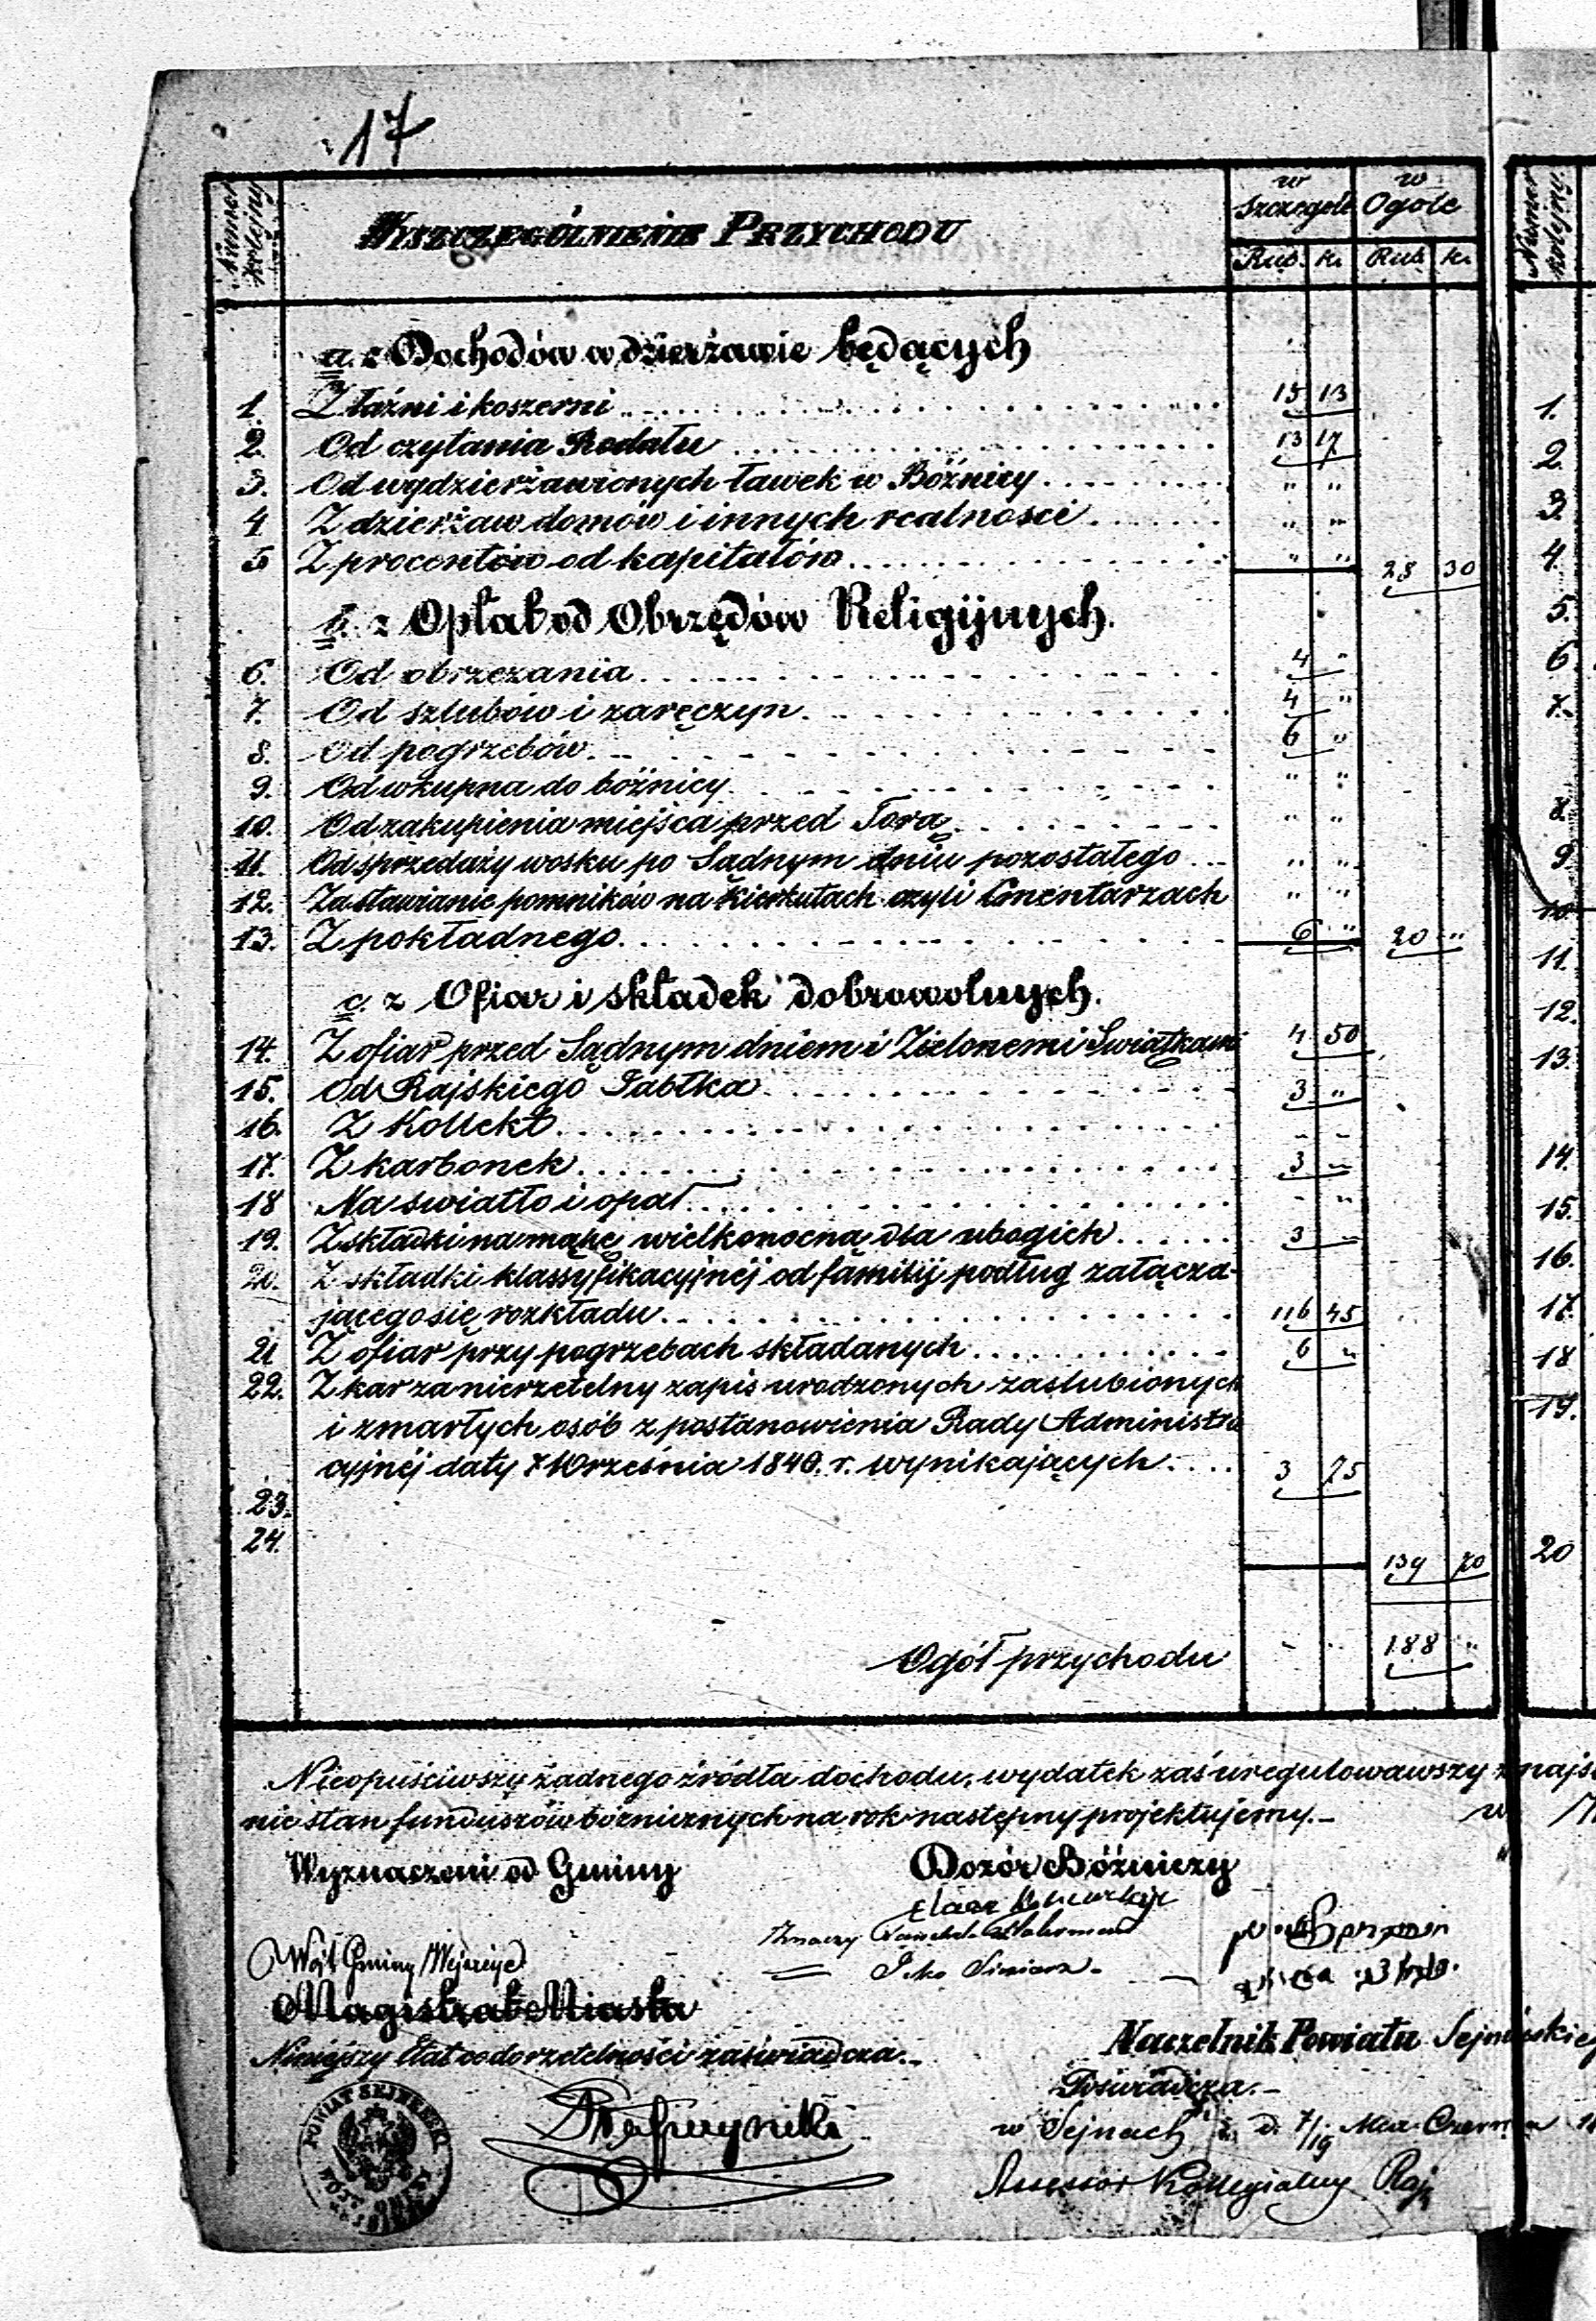 17
Numer kolejny
WYSZCZEGÓLNIENIE PRZYCHODU
w Szczególe w Ogóle
Rub. k. Rub. k.
Numer kolejny
a. z Dochodów w dzierżawie będących
1. Z łaźni i koszerni 15 13
2. Od czytania Rodału 13 17
3. Od wydzierżawionych ławek w Bóżnicy " "
4 Z dzierżaw domów i innych realności " "
5 Z procentów od kapitałów " " 28 30
b. z Opłat od Obrzędów Religijnych.
6. Od obrzezania 4 "
7. Od szlubów i zaręczyn 4 "
8. Od pogrzebów 6 "
9. Od wkupna do bóżnicy " "
10. Od zakupienia miejsca przed Torą " "
11. Od sprzedaży wosku po Sądnym dniu pozostałego " "
12. Za stawianie pomników na Kierkutach czyli Cmentarzach " "
13. Z pokładnego 6 " 20 "
c. z Ofiar i składek dobrowolnych.
14. Z ofiar przed Sądnym dniem i Zielonemi Swiątkami 4 50
15. Od Rajskiego Jabłka 3 "
16. Z Kollekt - -
17. Z karbonek 3 "
18 Na swiatło i opał - "
19. Z składki na mąkę wielkonocną dla ubogich 3 "
20. Z składki klassyfikacyjnéj od familij podług załącza-
jącego się rozkładu 116 45
21 Z ofiar przy pogrzebach składanych 6 "
22. Z kar za nierzetelny zapis urodzonych zaslubionych
i zmarłych osób z postanowienia Rady Administra
cyjnéj daty 7 Września 1840. r. wynikających 3 75
23.
24.
139 70
Ogół przychodu - - 188 "
1.
2.
3.
4.
5.
6.
7.
8.
9.
10.
11.
12.
13.
14.
15.
16.
17.
18
19.
20
Nieopuściwszy żadnego źródła dochodu, wydatek zaś uregulowawszy
nie stan funduszów bóżnicznych na rok następny projektujemy.- w
Wyznaczeni od Gminy Dozór Bóżniczy
Wójt Gminy
Magistrat Miasta
Naczelnik Powiatu Sejneńskiego
Niniejszy Etat co do rzetelności zaświadcza.-
Poświadcza.-
w Sejnach d. 7/19 Mca Czerwca
Assessor Kollegialny
POWIAT SEJNEŃSKI